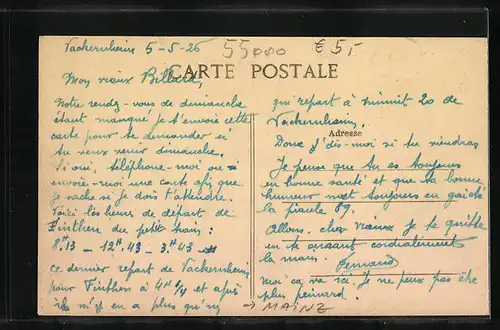 Vackernheim 5-5-26
55000
€ 5,-
Mon vieux Billard,
CARTE POSTALE
Notre rendez-vous de dimanche
étant manqué je t'envoie cette
carte pour te demander si
tu veux venir dimanche.
Si oui, téléphone-moi ou
envoie-moi une carte afin que
je sache si je dois t'attendre.
Voici les heures de départ de
Finthen du petit train :
8H13 - 12H.43 - 3H43
ce dernier repart de Vackernheim
pour Finthen à 4H 1/4 et après
il n'y en a plus qu'un
qui repart à minuit 20 de
Vackernheim.
Adresse
Donc, dis-moi si tu viendras
Je pense que tu es toujours
en bonne santé et que ta bonne
humeur met toujours en gaieté
la piaule 69.
Allons, cher vieux je te quitte
en te serrant cordialement
la main.
Fernand
Moi ça va ici. Je ne peux pas être
plus peinard.
→ MAINZ